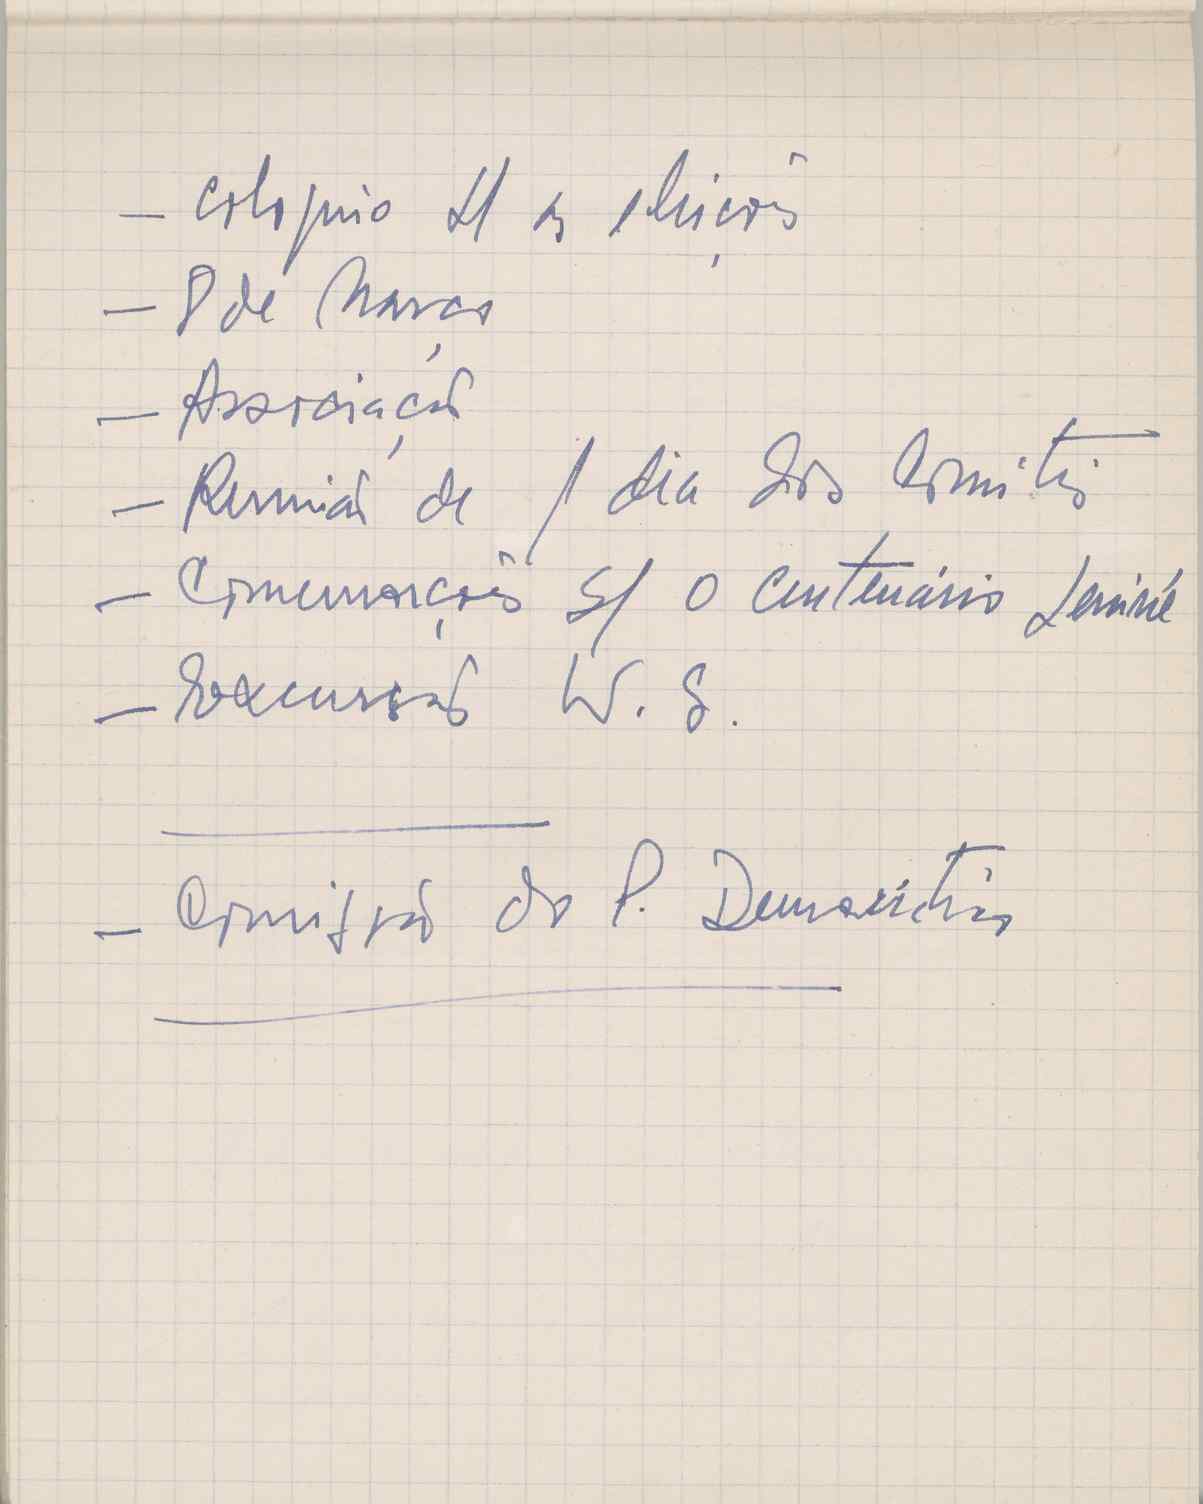 – Coloquio s/ as eleições
– 8 de Março
– Associação
– Reunião de 1 dia dos Comités
– Comemorações s/ o centenário Lenine
– Excursão W. S.
– Comissão do P. Democrático